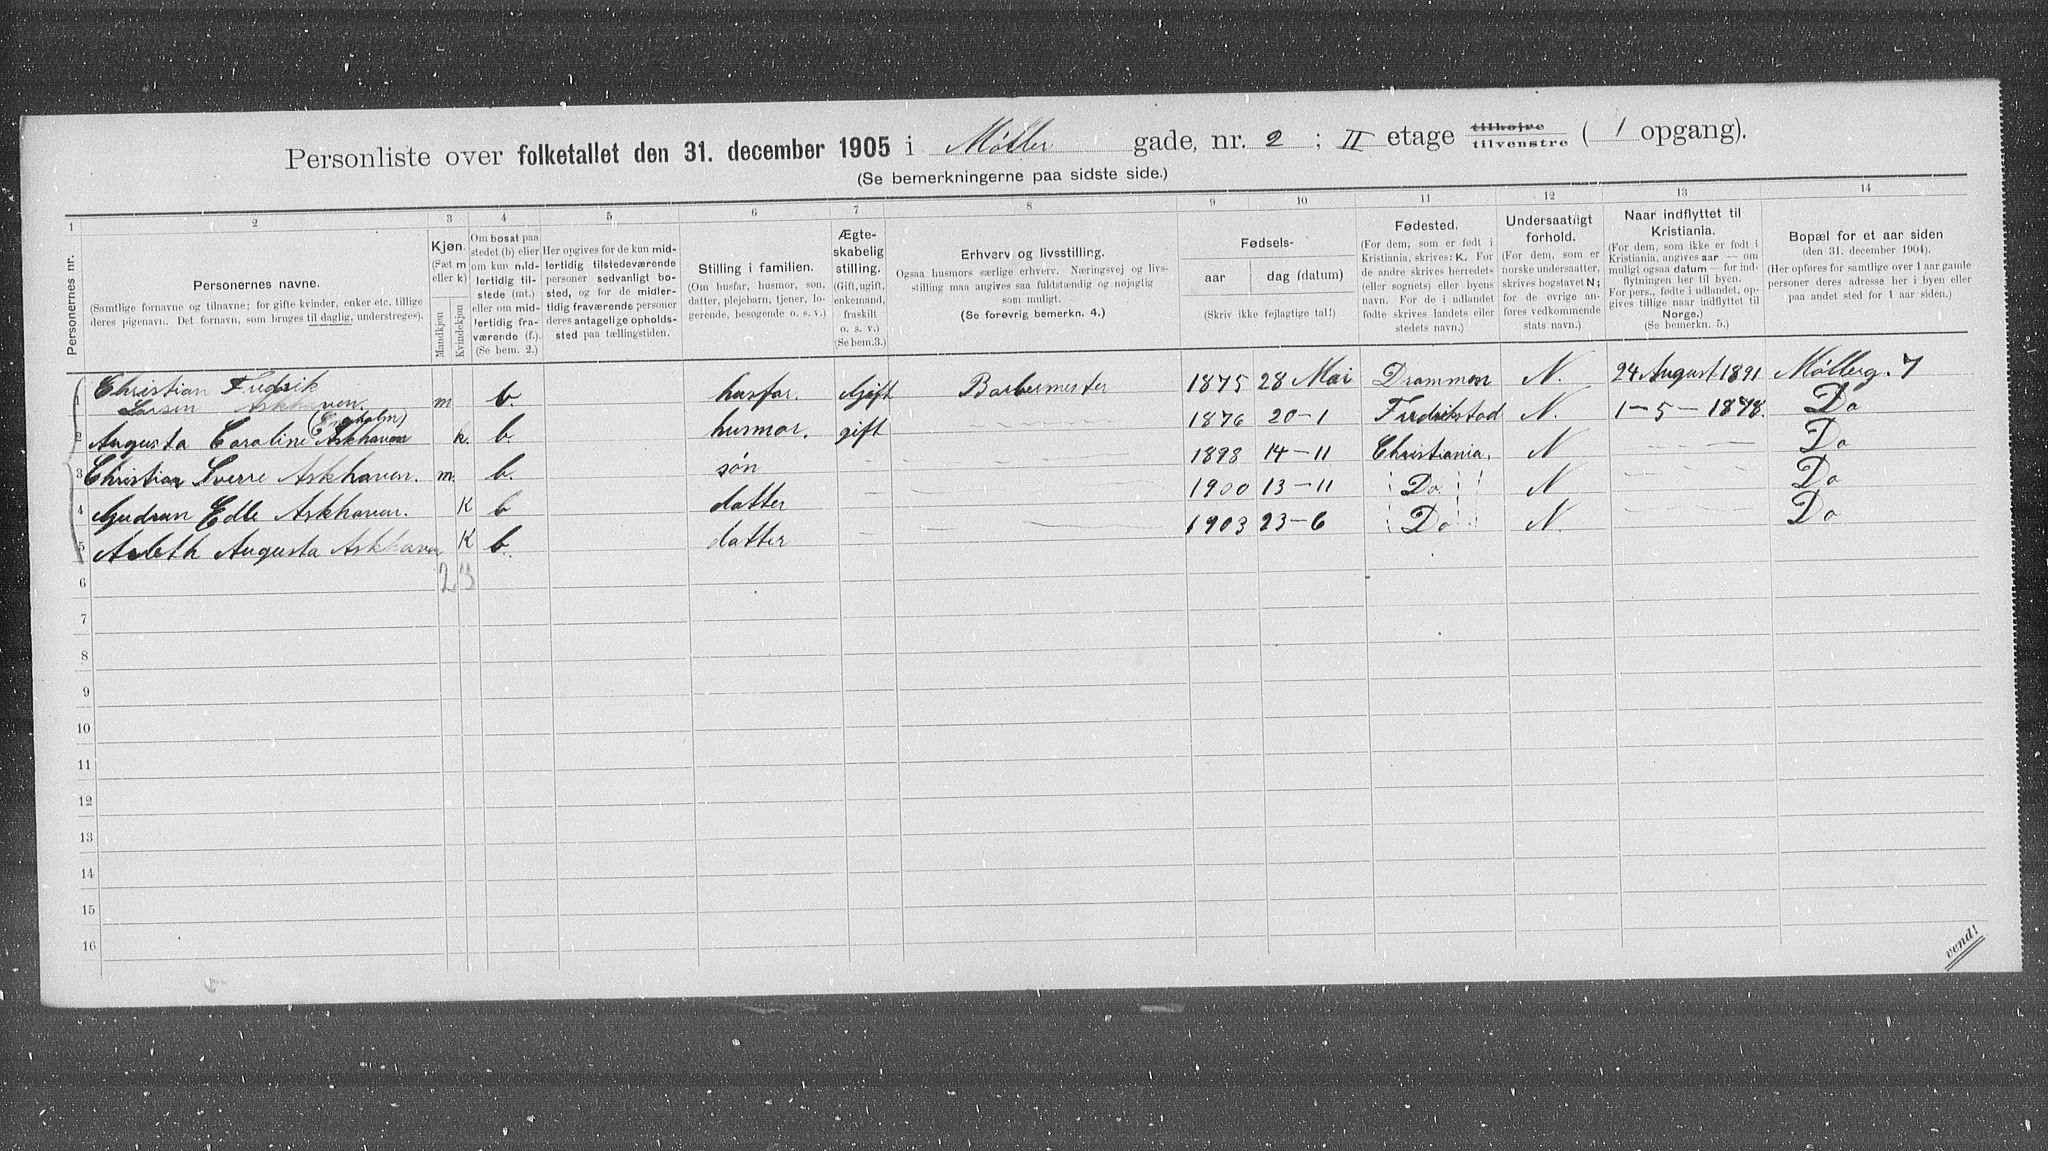 Personliste over folketallet den 31. december 1905 i Møller gade, nr. 2 ; II etage tilhøjre tilvenstre ( 1 opgang).
(Se bemerkningerne paa sidste side.)
1 2 3 4 5 6 7 8 9 10 11 12 13 14
Personernes nr.
Personernes navne.
(Samtlige fornavne og tilnavne; for gifte kvinder, enker etc. tillige
deres pigenavn. Det fornavn, som bruges til daglig, understreges).
Kjøn.
(Sæt m
eller k)
Mandkjøn
Kvindekjøn
Om bosat paa
stedet (b) eller
om kun mid-
lertidig til-
stede (mt.)
eller om mid-
lertidig fra-
værende (f.).
(Se bem. 2.)
Her opgives for de kun mid-
lertidig tilstedeværende
personer sedvanligt bo-
sted, og for de midler-
tidig fraværende personer
deres antagelige opholds-
sted paa tællingstiden.
Stilling i familien.
(Om husfar, husmor, søn,
datter, plejebarn, tjener, lo-
gerende, besøgende o. s. v.)
Ægte-
skabelig
stilling.
(Gift, ugift,
enkemand,
fraskilt
o. s. v.)
(Se bem.3.)
Erhverv og livsstilling.
Ogsaa husmors særlige erhverv. Næringsvej og livs-
stilling maa angives saa fuldstændig og nøjagtig
som muligt.
(Se forøvrig bemerkn. 4.)
Fødsels-
aar dag (datum)
(Skriv ikke fejlagtige tal!)
Fødested.
(For dem, som er født i
Kristiania, skrives: K. For
de andre skrives herredets
(eller sognets) eller byens
navn. For de i udlandet
fødte skrives landets eller
stedets navn.)
Undersaatligt
forhold.
(For dem, som er
norske undersaatter,
skrives bogstavet N;
for de øvrige an-
føres vedkommende
stats navn.)
Naar indflyttet til
Kristiania.
(For dem, som ikke er født i
Kristiania, angives aar — om
muligt ogsaa datum — for ind-
flytningen her til byen.
For pers., fødte i udlandet, op-
gives tillige naar indflyttet til
Norge.)
(Se bemerkn. 5.)
Bopæl for et aar siden
(den 31. december 1904).
(Her opføres for samtlige over 1 aar gamle
personer deres adresse her i byen eller
paa andet sted for 1 aar siden.)
1 Christian Fredrik
Larsen Askhaven. m b. husfar. Gift Barbermester 1875 28 Mai Drammen N. 24 August 1891 Møllerg. 7
(Engholm)
2 Augusta Caroline Askhaven k. b. husmor. gift 1876 20-1 Fredrikstad N. 1-5-1878. Do
3 Christian Sverre Askhaven. m. b. søn 1898 14-11 Christiania. N Do
4 Gudrun Edle Askhaven. K b datter 1900 13-11 Do N Do
5 Asleth Augusta Askhaven K b. datter 1903 23-6 Do N. Do
2 3
6
7
8
9
10
11
12
13
14
15
16
vend!